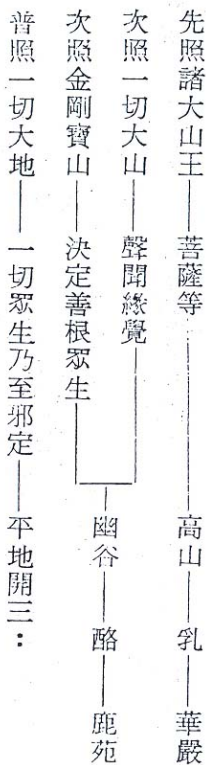 先照諸大山王——菩薩等——高山——乳——華嚴
次照一切大山——聲聞緣覺——幽谷——酪——鹿苑
次照金剛寶山——決定善根眾生
普照一切大地——一切眾生乃至邪定——平地開三：